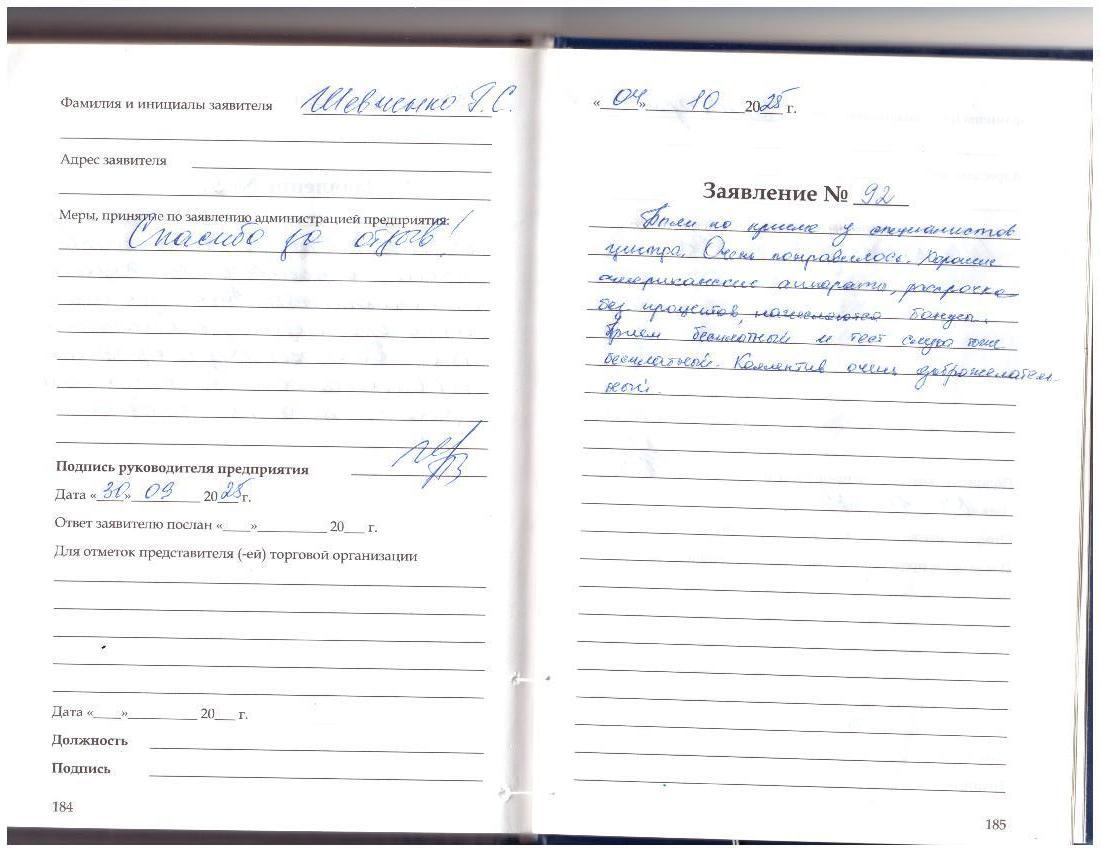 Фамилия и инициалы заявителя Шевченко Г.С.
Адрес заявителя
Меры, принятые по заявлению администрацией предприятия:
Спасибо за отзыв!
Подпись руководителя предприятия
Дата «30» 09 2025 г.
Ответ заявителю послан «___»_________ 20___ г.
Для отметок представителя (-ей) торговой организации
Дата «___»_________ 20___ г.
Должность
Подпись
184
«04» 10 2025 г.
Заявление № 92
Были на приеме у специалистов
центра. Очень понравилось. Хорошие
американские аппараты, рассрочка
без процентов, начисляются бонусы.
Прием бесплатный и тест слуха тоже
бесплатный. Коллектив очень доброжелатель-
ный.
185